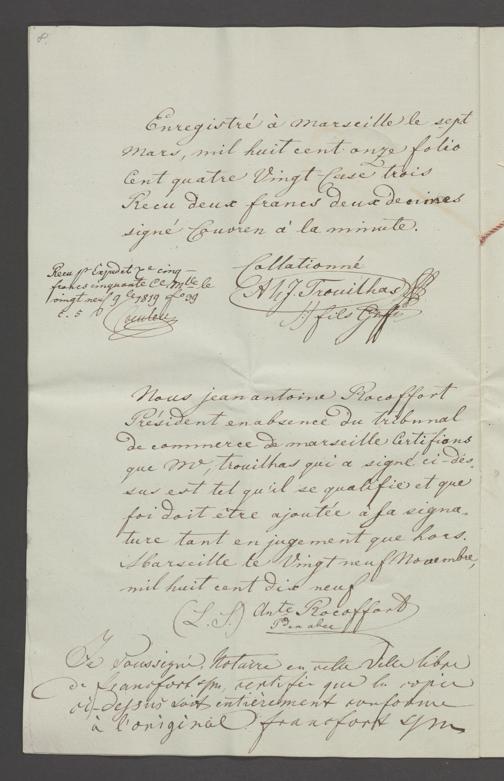 8.
Enregistré à Marseille le sept
Mars, mil huit cent onze folio
Cent quatre Vingt Case trois
Reçu deux francs deux decimes
signé Couvren à la minute.
Collationné
Reçu pr Expedit. cinq
francs cinquante le
vingt neuf 9bre 1819 fo 39
c. 5
A h J. Trouilhas
fils
Nous jean antoine Rocoffort
Président en absence du tribunal
de commerce de marseille Certifions
que Mr, trouilhas qui a signé ci-des-
sus est tel qu'il se qualifie et que
foi doit etre ajoutée à sa signa-
ture tant en jugement que hors.
Marseille le Vingt neuf Novembre,
mil huit cent dix neuf
(L. S.) Ante Rocoffort
Je Soussigné, Notaire en cette Ville libre
de francfort s/m, certifie que la copie
ci-dessus soit entièrement conforme
à l'original. francfort s/m